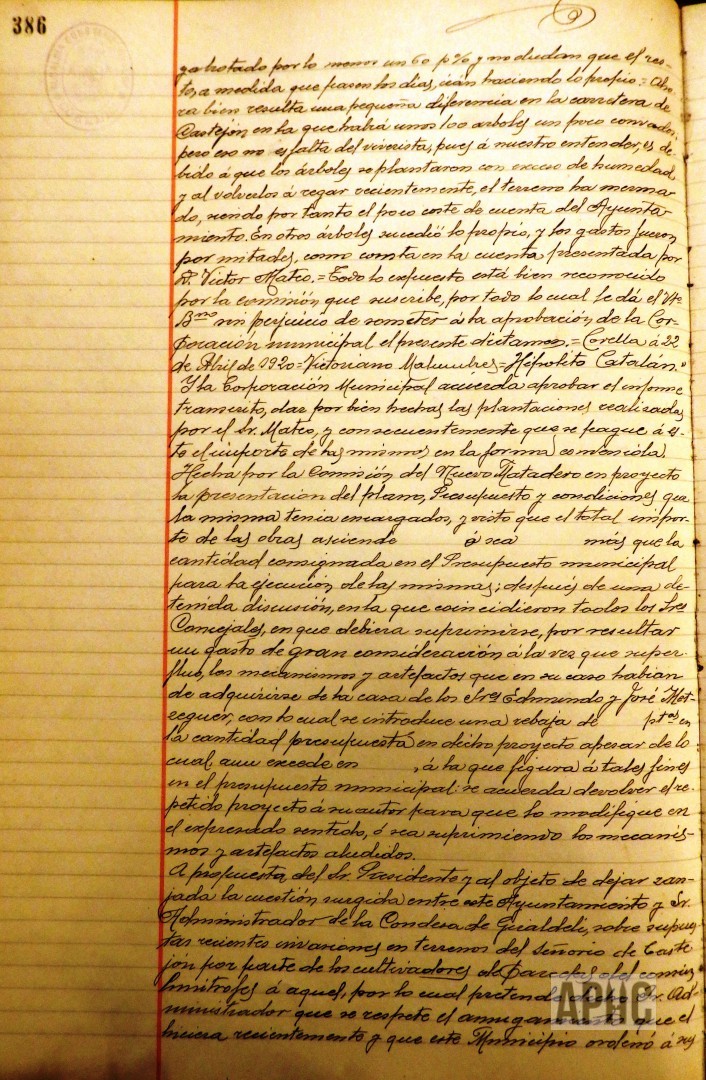 386
ya brotado por lo menos un 60 p% y no dudan que el res-
to, a medida que pasen los días, irán haciendo lo propio.= Aho-
ra bien resulta una pequeña diferencia en la carretera de
Castejón en la que habrá unos 100 árboles un poco
pero eso no es falta del viverista, pues á nuestro entender, es de-
bido á que los árboles se plantaron con exceso de humedad
y al volverlos á regar recientemente, el terreno ha merma-
do, siendo por tanto el poco coste de cuenta del Ayunta-
miento. En otros árboles sucedió lo propio, y los gastos fueron
por mitades, como consta en la cuenta presentada por
D. Victor Mateo.= Todo lo expuesto está bien reconocido
por la comisión que suscribe, por todo lo cual le dá el Vto
Bno sin perjuicio de someter á la aprobación de la Cor-
poración municipal el presente dictamen.= Corella á 22
de Abril de 1920= Victoriano Malumbres= Hipólito Catalán."
Y la Corporación Municipal acuerda aprobar el informe
transcrito, dar por bien hechas las plantaciones realizadas
por el Sr. Mateo, y consecuentemente que se pague á és-
te el importe de las mismas en la forma
Hecha por la Comisión del Nuevo Matadero en proyecto
la presentación del plano, Presupuesto y condiciones que
la misma tenia encargados, y visto que el total impor-
te de las obras asciende ó sea más que la
cantidad consignada en el Presupuesto municipal
para la ejecución de las mismas; después de una de-
tenida discusión, en la que coincidieron todos los Sres
Concejales, en que debiera suprimirse, por resultar
un gasto de gran consideración á la vez que super-
fluo, los mecanismos y artefactos que en su caso habían
de adquirirse de la casa de los Sres Edmundo y José Met-
zeguer, con lo cual se introduce una rebaja de ptas en
la cantidad presupuesta en dicho proyecto apesar de lo
cual aun excede en , á la que figura á tales fines
en el presupuesto municipal: se acuerda devolver el re-
petido proyecto á su autor para que lo modifique en
el expresado sentido, ó sea suprimiendo los mecanis-
mos y artefactos aludidos.
A propuesta del Sr. Presidente y al objeto de dejar zan-
jada la cuestión surgida entre este Ayuntamiento y Sr.
Administrador de la Condesa de Giraldeli, sobre supues-
tas recientes invasiones en terrenos del Señorio de Caste-
jón por parte de los cultivadores de Parcelas del comun
limítrofes á aquel, por lo cual pretende dicho Sr. Ad-
ministrador que se respete el amugamiento que el
hiciera recientemente y que este Municipio ordenó á su
APHC